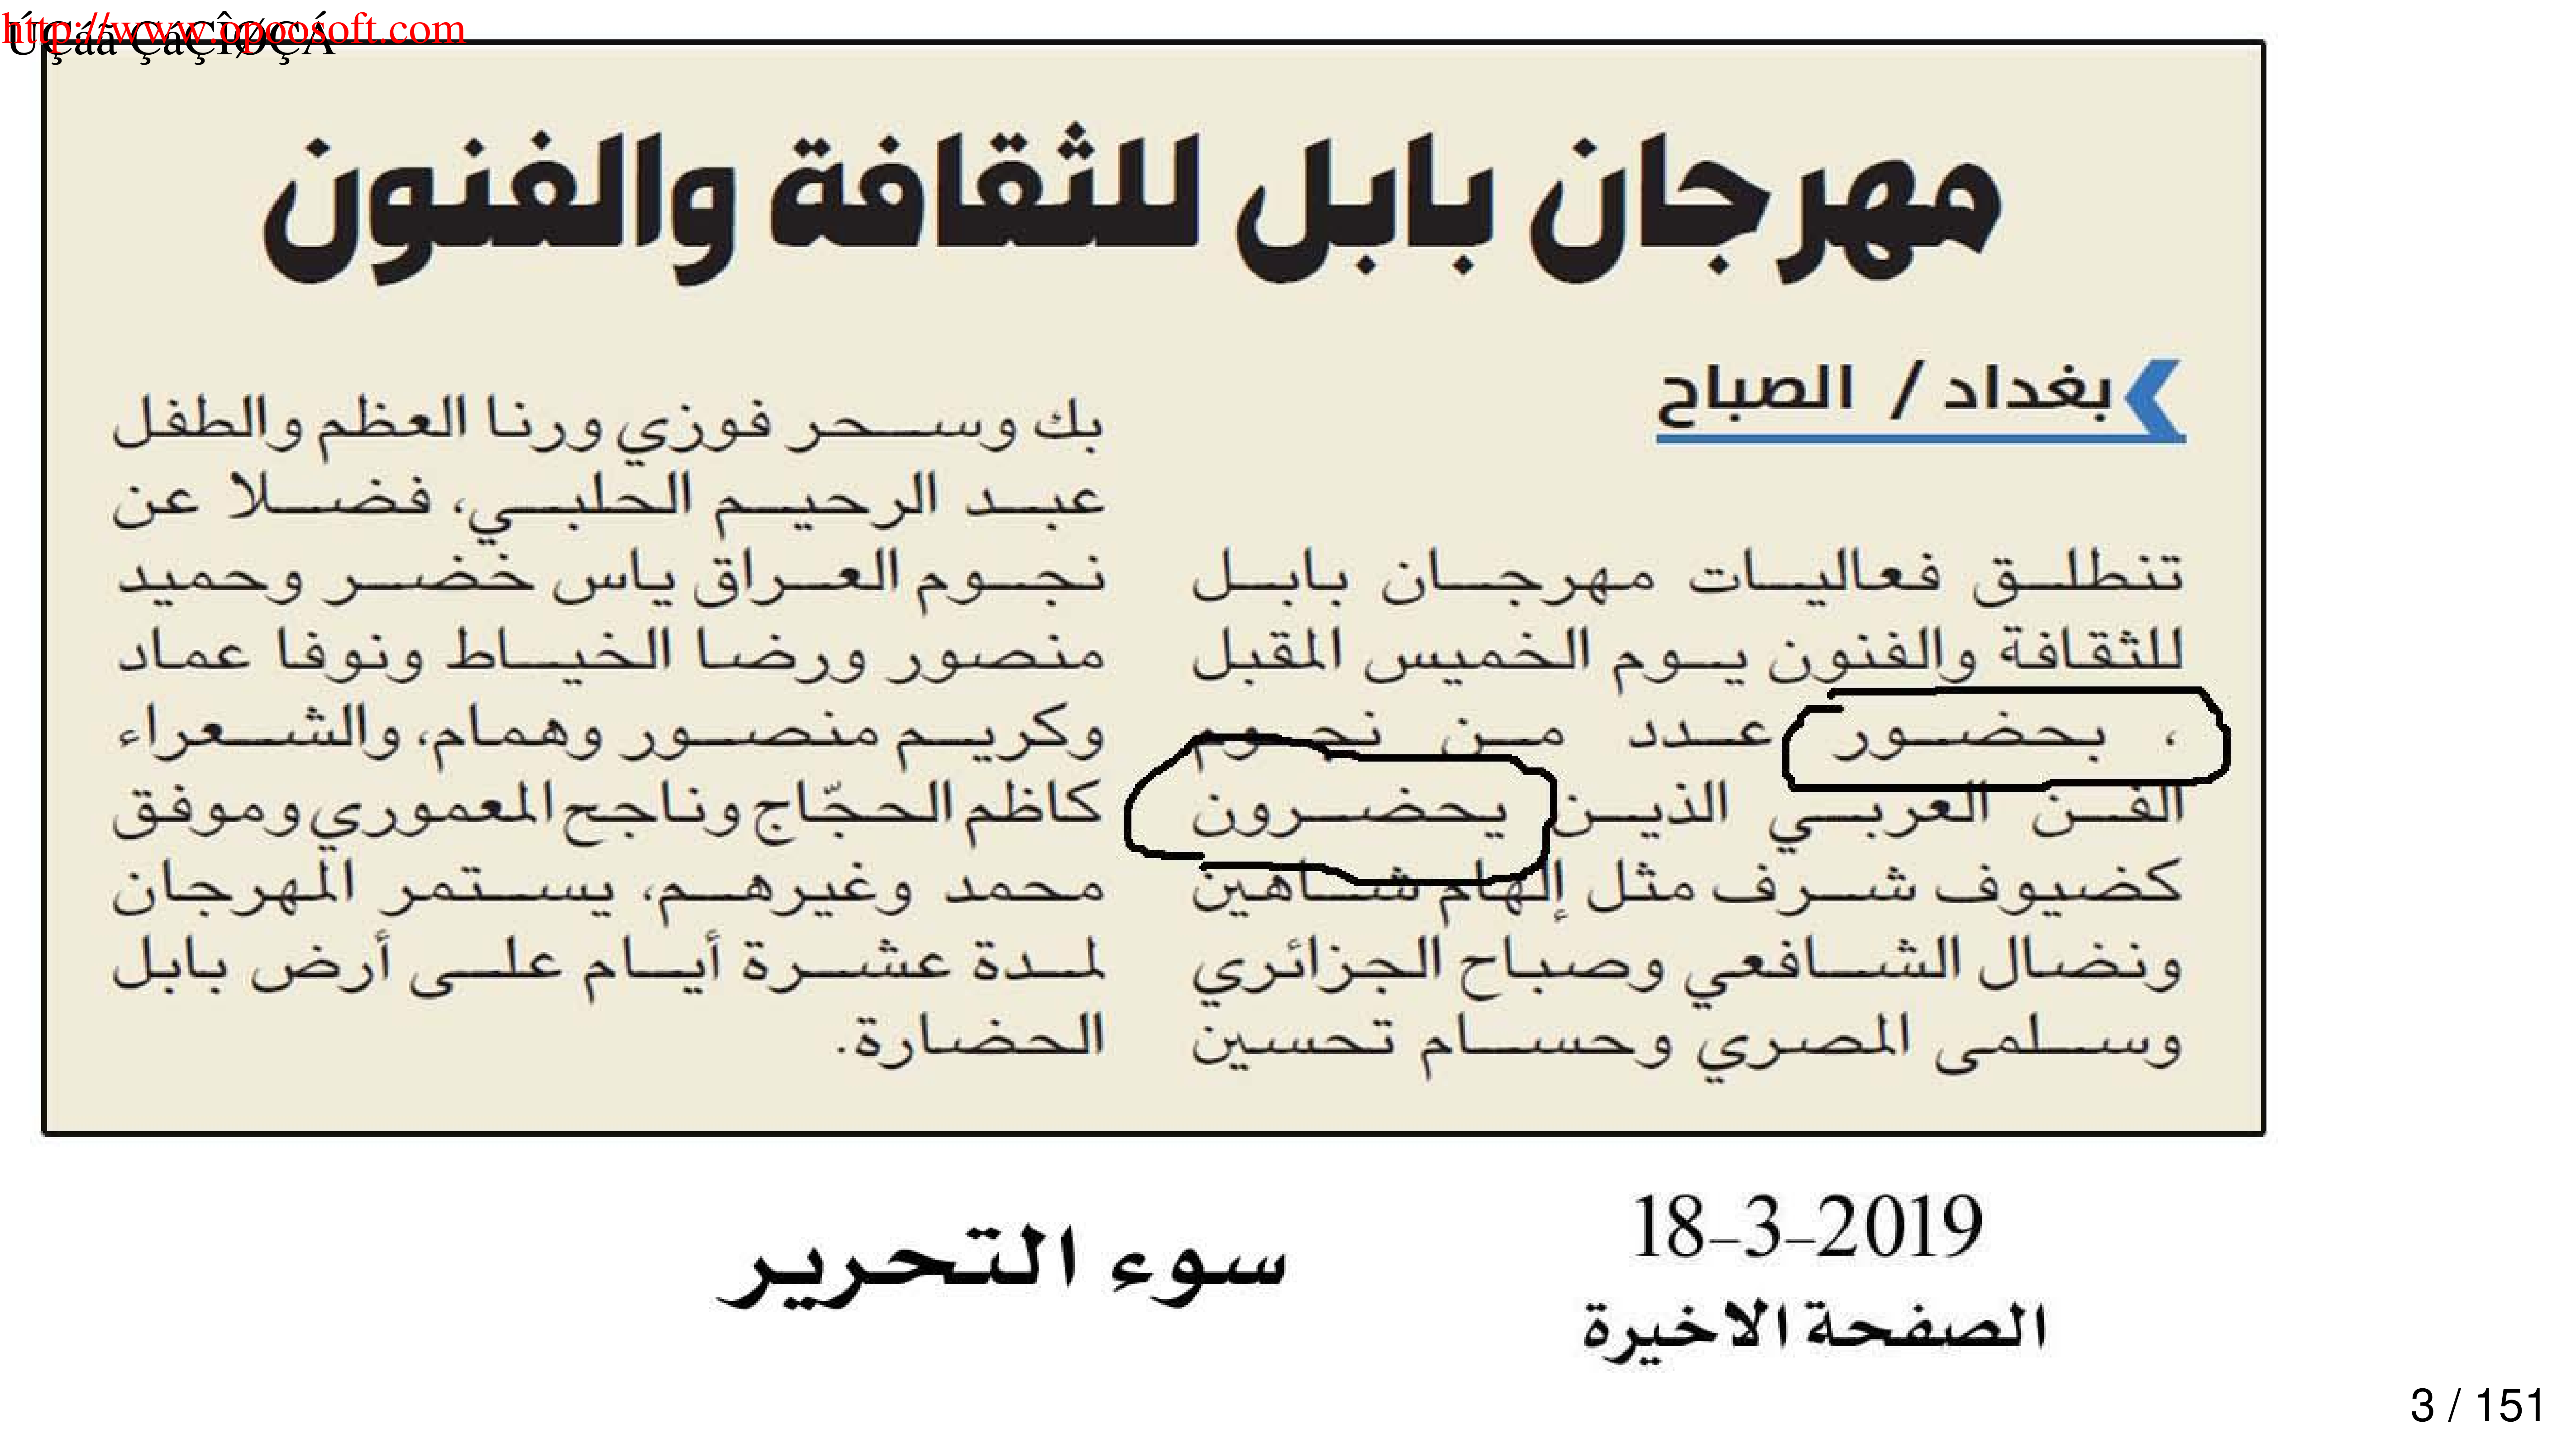 http://www.opoosoft.com
ÚÇáã ÇáÇÎØÇÁ
مهرجان بابل للثقافة والفنون
بغداد / الصباح
تنطلق فعاليات مهرجان بابل
للثقافة والفنون يوم الخميس المقبل
، بحضور عدد من نجوم
الفن العربي الذين يحضرون
كضيوف شرف مثل إلهام شاهين
ونضال الشافعي وصباح الجزائري
وسلمى المصري وحسام تحسين
بك وسحر فوزي ورنا العظم والطفل
عبد الرحيم الحلبي، فضلا عن
نجوم العراق ياس خضر وحميد
منصور ورضا الخياط ونوفا عماد
وكريم منصور وهمام، والشعراء
كاظم الحجّاج وناجح المعموري وموفق
محمد وغيرهم، يستمر المهرجان
لمدة عشرة أيام على أرض بابل
الحضارة.
18-3-2019
سوء التحرير
الصفحة الاخيرة
3 / 151